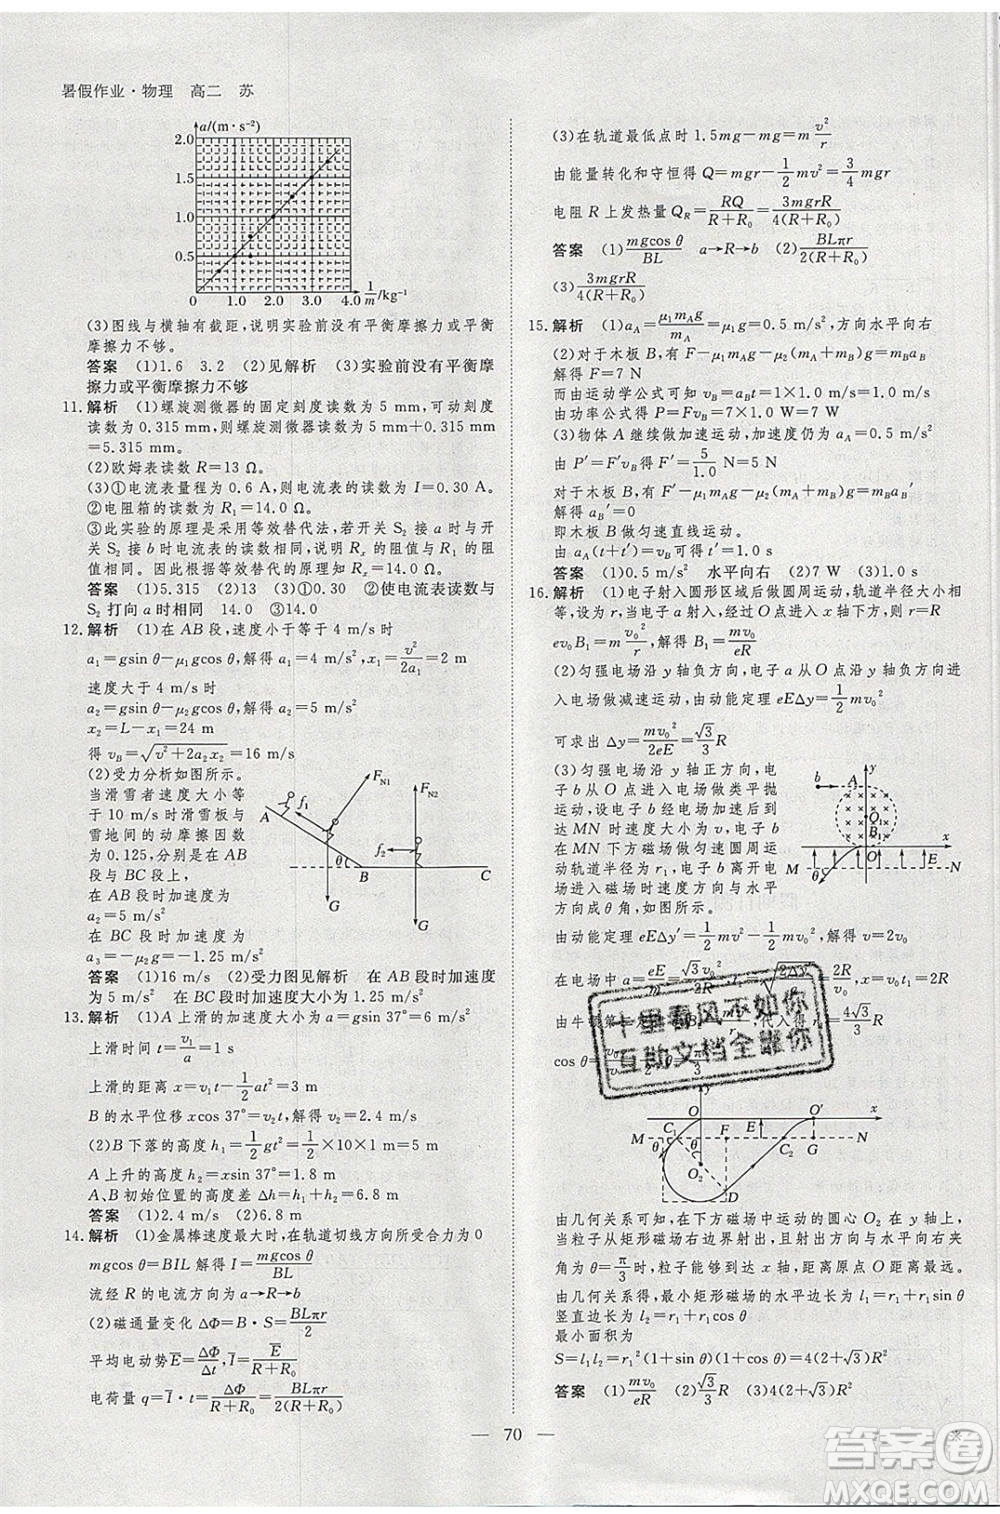 暑假作业·物理 高二 苏
a/(m·s⁻²)
2.0
1.5
1.0
0.5
0 1.0 2.0 3.0 4.0 1/m/kg⁻¹
(3)图线与横轴有截距,说明实验前没有平衡摩擦力或平衡
摩擦力不够。
答案 (1)1.6 3.2 (2)见解析 (3)实验前没有平衡摩
擦力或平衡摩擦力不够
11.解析 (1)螺旋测微器的固定刻度读数为 5 mm,可动刻度
读数为 0.315 mm,则螺旋测微器读数为 5 mm+0.315 mm
=5.315 mm。
(2)欧姆表读数 R=13 Ω。
(3)①电流表量程为 0.6 A,则电流表的读数为 I=0.30 A。
②电阻箱的读数为 R₁=14.0 Ω。
③此实验的原理是采用等效替代法,若开关 S₂ 接 a 时与开
关 S₂ 接 b 时电流表的读数相同,则 Rₓ 的阻值与 R₁ 的阻
值相同。因此等效替代的原理知 Rₓ=14.0 Ω。
答案 (1)5.315 (2)13 (3)①0.30 ②使电流表读数与
S₂ 打向 a 时相同 14.0 14.0
12.解析 (1)在 AB 段,速度小于等于 4 m/s 时
a₁=gsin θ-μ₁gcos θ,解得 a₁=4 m/s²,x₁=v²/2a₁=1 m
速度大于 4 m/s 时
a₂=gsin θ-μ₂gcos θ,解得 a₂=5 m/s²
x₂=L-x₁=24 m
得 v_B=√(v²+2a₂x₂)=16 m/s
(2)受力分析如图所示。
当滑雪者速度大小大
于 10 m/s 时滑雪板与
雪地间的动摩擦因数
为 0.125,分别是在 AB
段与 BC 段。
在 AB 段时加速度为
a₂=5 m/s²
在 BC 段时加速度为
a₃=-μ₂g=-1.25 m/s²
A f₁ F_N1 F_N2 f₂ θ B C G G
答案 (1)16 m/s (2)受力图见解析 在 AB 段时加速度
为 5 m/s² 在 BC 段时加速度大小为 1.25 m/s²
13.解析 (1)A 上滑的加速度大小为 a=gsin 37°=6 m/s²
上滑时间 t=v₁/a=1 s
上滑的距离 x=v₁t-1/2at²=3 m
B 的水平位移 xcos 37°=v₂t,解得 v₂=2.4 m/s
(2)B 下落的高度 h₁=1/2gt²=1/2×10×1 m=5 m
A 上升的高度 h₂=xsin 37°=1.8 m
A、B 初始位置的高度差 Δh=h₁+h₂=6.8 m
答案 (1)2.4 m/s (2)6.8 m
14.解析 (1)金属棒速度最大时,在轨道切线方向所受合力为 0
mgcos θ=BIL 解得 I=mgcos θ/BL
流经 R 的电流方向为 a→R→b
(2)磁通量变化 ΔΦ=B·S=BLπr/2
平均电动势 E̅=ΔΦ/Δt,I̅=E̅/(R+R₀)
电荷量 q=I̅·Δt=ΔΦ/(R+R₀)=BLπr/2(R+R₀)
(3)在轨道最低点时 1.5mg-mg=m v²/r
由能量转化和守恒得 Q=mgr-1/2mv²=3/4mgr
电阻 R 上发热量 Q_R=RQ/(R+R₀)=3mgrR/4(R+R₀)
答案 (1)mgcos θ/BL a→R→b (2)BLπr/2(R+R₀)
(3)3mgrR/4(R+R₀)
15.解析 (1)a_A=μ₁m_Ag/m_A=μ₁g=0.5 m/s²,方向水平向右
(2)对于木板 B,有 F-μ₁m_Ag-μ₂(m_A+m_B)g=m_Ba_B
解得 F=7 N
而由运动学公式可知 v_B=a_Bt=1×1.0 m/s=1.0 m/s
由功率公式得 P=Fv_B=7×1.0 W=7 W
(3)物体 A 继续做加速运动,加速度仍为 a_A=0.5 m/s²
由 P′=F′v_B 可得 F′=5/1.0 N=5 N
对于木板 B,有 F′-μ₁m_Ag-μ₂(m_A+m_B)g=m_Ba_B′
解得 a_B′=0
即木板 B 做匀速直线运动。
由 a_A(t+t′)=v_B 可得 t′=1.0 s
答案 (1)0.5 m/s² 水平向右 (2)7 W (3)1.0 s
16.解析 (1)电子射入圆形区域后做圆周运动,轨道半径大小相
等,设为 r,当电子 a 射入,经过 O 点进入 x 轴下方,则 r=R
ev₀B₁=m v₀²/r,解得 B₁=mv₀/eR
(2)匀强电场沿 y 轴负方向,电子 a 从 O 点沿 y 轴负方向进
入电场做减速运动,由动能定理 eEΔy=1/2mv₀²
可求出 Δy=mv₀²/2eE=√3/3R
(3)匀强电场沿 y 轴正方向,电
子 b 进入电场做类平抛
运动,设电子 b 经电场加速后到
达 MN 时速度大小为 v,电子 b
在 MN 下方磁场做匀速圆周运
动轨道半径为 r₁,电子 b 离开电
场进入磁场时速度与水平
方向成 θ 角,如图所示。
y A O₁ B₁ O x M E N
由动能定理 eEΔy′=1/2mv²-1/2mv₀²,解得 v=2v₀
十里春风不如你
互助文档全靠你
y O O′ x M C₁ F E C₂ G N θ O₂ D
由几何关系可知,在下方磁场中运动的圆心 O₂ 在 y 轴上,
当粒子从矩形磁场右边界射出,且射出方向与水平向右
夹角为 θ=π/3时,粒子能够到达 x 轴,距离原点 O 距离最远。
由几何关系得,最小矩形磁场的水平边长为 l₁=r₁+r₁sin θ
竖直边长为 l₂=r₁+r₁cos θ
最小面积为
S=l₁l₂=r₁²(1+sin θ)(1+cos θ)=4(2+√3)R²
答案 (1)mv₀/eR (2)√3/3R (3)4(2+√3)R²
70
答案圈
MXQE.COM